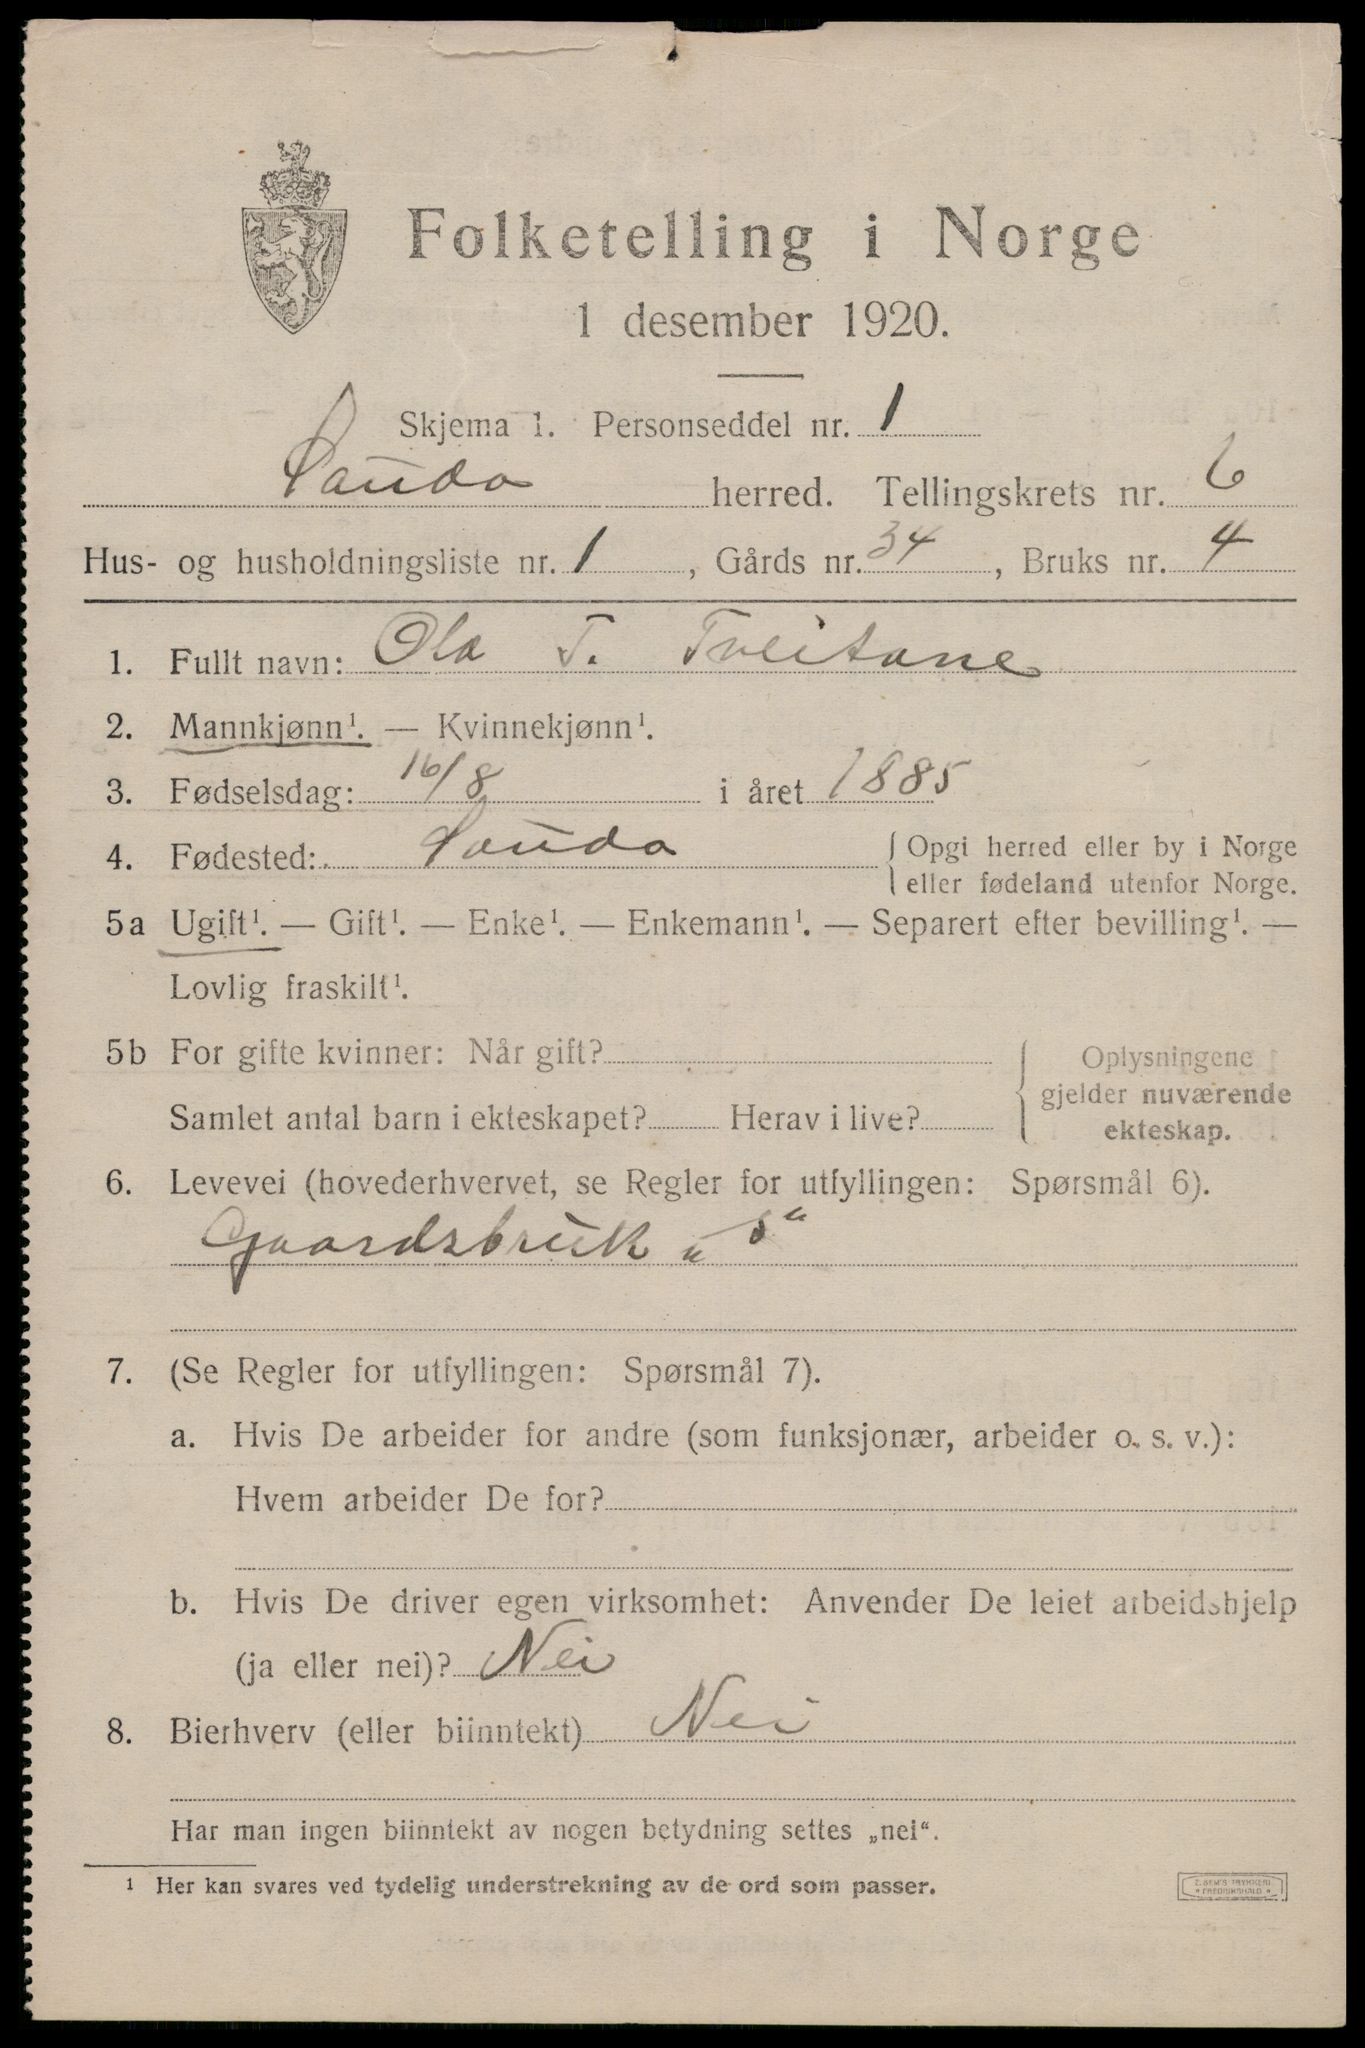 Folketelling i Norge
1 desember 1920.
Skjema 1. Personseddel nr. 1
Sauda herred. Tellingskrets nr. 6
Hus- og husholdningsliste nr. 1, Gårds nr. 34, Bruks nr. 4
1. Fullt navn: Ola T. Tveitane
2. Mannkjønn¹. — Kvinnekjønn¹.
3. Fødselsdag: 16/8 i året 1885
4. Fødested: Sauda { Opgi herred eller by i Norge
eller fødeland utenfor Norge.
5a Ugift¹. — Gift¹. — Enke¹. — Enkemann¹. — Separert efter bevilling¹. —
Lovlig fraskilt¹.
5b For gifte kvinner: Når gift?
Samlet antal barn i ekteskapet? Herav i live?
{ Oplysningene
gjelder nuværende
ekteskap.
6. Levevei (hovederhvervet, se Regler for utfyllingen: Spørsmål 6).
Gaardsbruk „S“
7. (Se Regler for utfyllingen: Spørsmål 7).
a. Hvis De arbeider for andre (som funksjonær, arbeider o. s. v.):
Hvem arbeider De for?
b. Hvis De driver egen virksomhet: Anvender De leiet arbeidshjelp
(ja eller nei)? Nei
8. Bierhverv (eller biinntekt) Nei
Har man ingen biinntekt av nogen betydning settes „nei“.
¹ Her kan svares ved tydelig understrekning av de ord som passer.